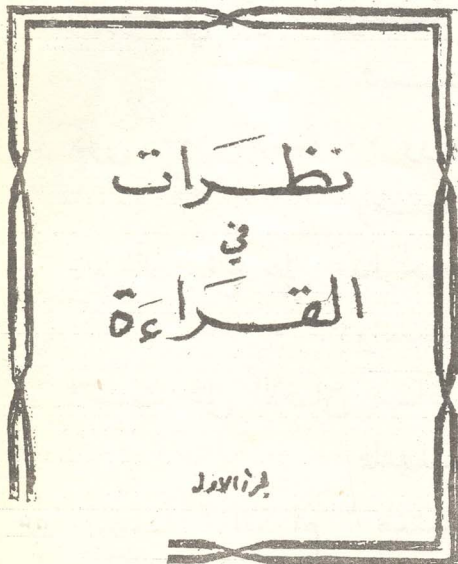 نظَرات
في
القَراءَة
الجزء الاول